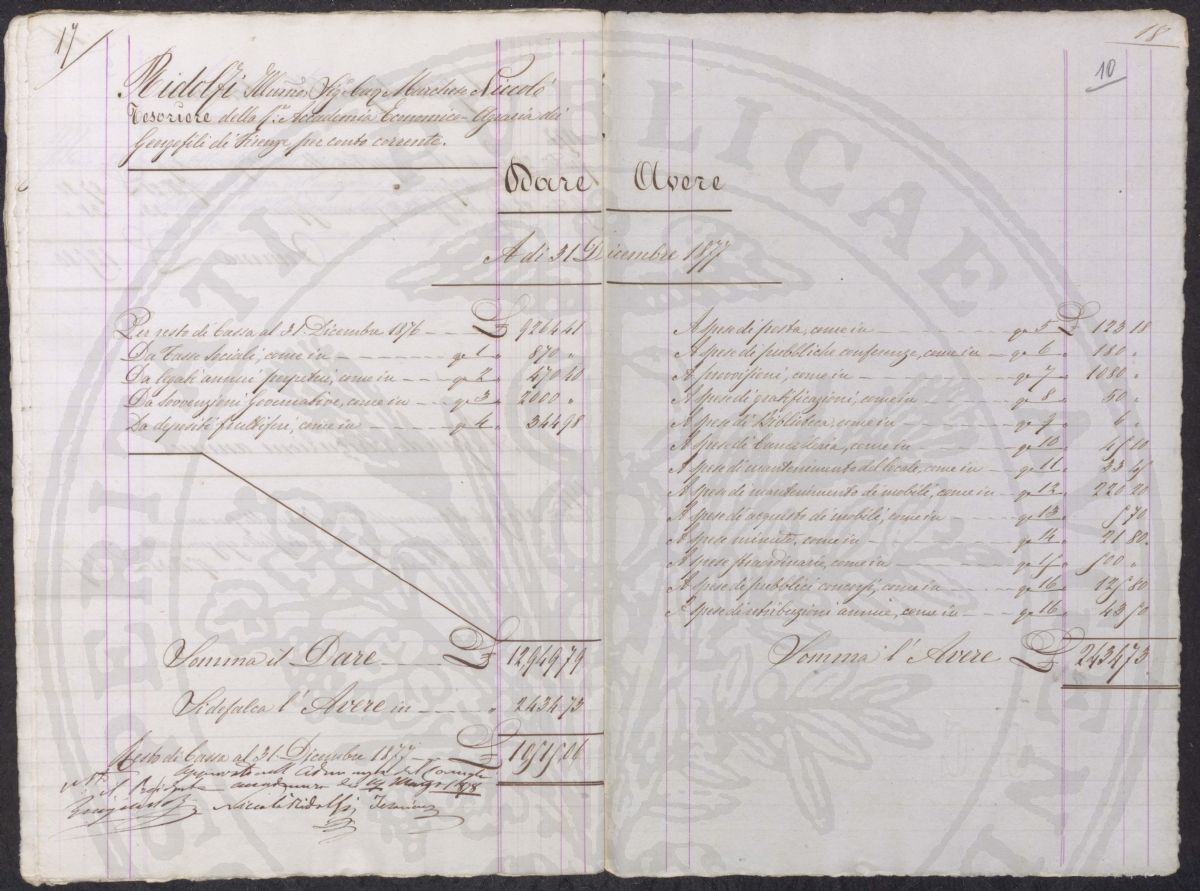 17
18
10
Ridolfi Illmo Sig. Cav. Marchese Niccolò
Tesoriere della R. Accademia Economico-Agraria dei
Georgofili di Firenze per conto corrente.
Dare Avere
A dì 31 Dicembre 1877
Per resto di Cassa al 31. Dicembre 1876 £ 9264 41
Da Tasse Sociali, come in 1 " 870 "
Da legati annui perpetui, come in 2 " 470 40
Da sovvenzioni Governative, come in 3 " 2000 "
Da depositi fruttiferi, come in 4 " 344 98
Somma il Dare £ 12949 79
Si defalca l'Avere in " 2434 73
Resto di Cassa al 31 Dicembre 1877 £ 10515 06
Approvato nell'
Il Presidente
Niccolò Ridolfi Tesoriere
A spese di posta, come in 5 £ 123 18
A spese di pubbliche conferenze, come in 6 " 180 "
A provvisioni, come in 7 " 1080 "
A spese di gratificazioni, come in 8 " 50 "
A spese di Biblioteca, come in 9 " 6 "
A spese di Cancelleria, come in 10 " 45 10
A spese di mantenimento del locale, come in 11 " 33 45
A spese di mantenimento di mobili, come in 12 " 220 20
A spese di acquisto di mobili, come in 13 " 5 70
A spese minute, come in 14 " 21 80
A spese straordinarie, come in 15 " 500 "
A spese di pubblici concorsi, come in 16 " 125 80
A spese di retribuzioni annue, come in 16 " 43 50
Somma l'Avere £ 2434 73
PUBLICAE